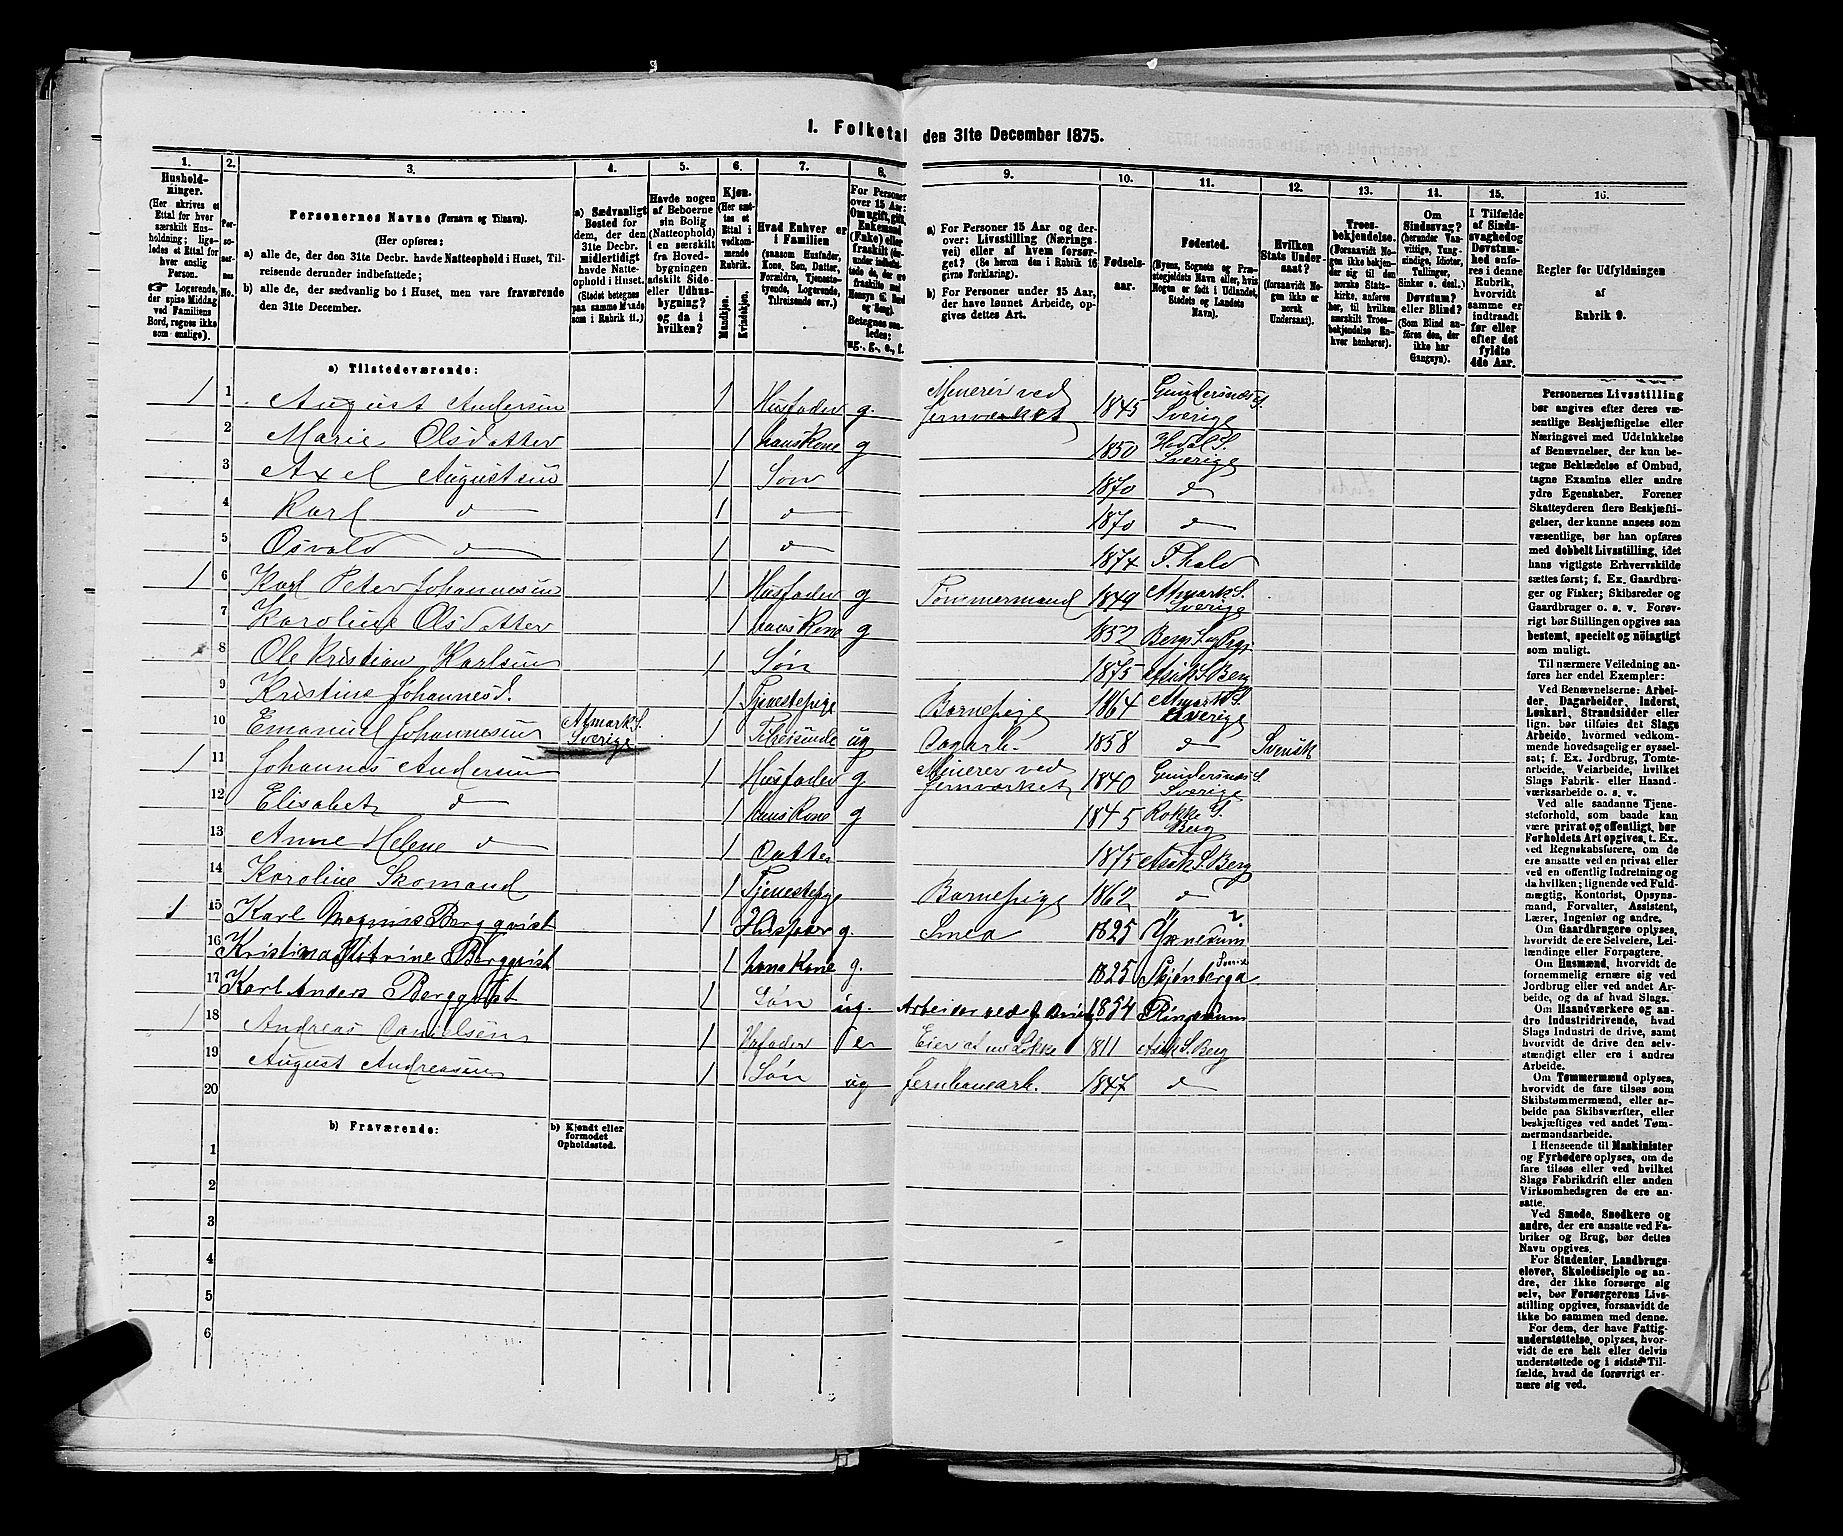 1. Folketal den 31te December 1875.
1.
Hushold-
ninger.
(Her skrives et
Ettal for hver
særskilt Hus-
holdning; lige-
ledes et Ettal for
hver enslig
Person.
Logerende,
der spise Middag
ved Familiens
Bord, regnes ikke
som enslige).
2.
Per-
so-
ner-
nes
No.
3.
Personernes Navne (Fornavn og Tilnavn).
(Her opføres:
a) alle de, der den 31te Decbr. havde Natteophold i Huset, Til-
reisende derunder indbefattede;
b) alle de, der sædvanlig bo i Huset, men vare fraværende
den 31te December.
4.
a) Sædvanligt
Bosted for
dem, der den
31te Decbr.
midlertidigt
havde Natte-
ophold i Huset.
(Stedet betegnes
paa samme Maade
som i Rubrik 11.)
5.
Havde nogen
af Beboerne
sin Bolig
(Natteophold)
i en særskilt
fra Hoved-
bygningen
adskilt Side-
eller Udhus-
bygning?
og da i
hvilken?
6.
Kjøn.
(Her sæt-
tes et
Ettal i
vedkom-
mende
Rubrik.
Mandkjøn.
Kvindekjøn.
7.
Hvad Enhver er
i Familien
(saasom Husfader,
Kone, Søn, Datter,
Forældre, Tjeneste-
tyende, Logerende,
Tilreisende osv.)
8.
For Personer
over 15 Aar:
Om ugift, gift,
Enkemand
(Enke) eller
fraskilt
Betegnes saa-
ledes:
ug., g., e., f.
9.
a) For Personer 15 Aar og der-
over: Livsstilling (Nærings-
vei) eller af hvem forsør-
get? (Se herom den i Rubrik 16
givne Forklaring).
b) For Personer under 15 Aar,
der have lønnet Arbeide, op-
gives dettes Art.
10.
Fødsels-
aar.
11.
Fødested.
(Byens, Sognets og Præ-
stegjeldets Navn eller, hvis
Nogen er født i Udlandet,
Stedets og Landets
Navn).
12.
Hvilken
Stats Under-
saat?
(forsaavidt No-
gen ikke er
norsk
Undersaat).
13.
Troes-
bekjendelse.
(Forsaavidt No-
gen ikke bekjen-
der sig til den
norske Stats-
kirke, anføres
her, til hvilken
særskilt Troes-
bekjendelse En-
hver henhører).
14.
Om
Sindssvag?
(herunder Van-
vittige, Tung-
sindige, Idioter,
Tullinger,
Sinker o. desl.)
Døvstum?
eller Blind?
(Som Blind an-
føres den, der
ikke har
Gangsyn).
15.
I Tilfælde
af Sinds-
svaghed og
Døvstum-
hed anfø-
res i denne
Rubrik,
hvorvidt
samme er
indtraadt
før eller
efter det
fyldte
4de Aar.
16.
Regler for Udfyldningen
af
Rubrik 9.
a) Tilstedeværende:
1 1 August Andersen 1 Husfader g. Minerer ved Jernværket 1845 Gundersnæs S. Sverige
2 Marie Olsdatter 1 hans Kone g 1850 Hedal S. Sverige
3 Axel Augustsen 1 Søn 1870 d
4 Karl d 1 d 1870 d
5 Osvald d 1 d 1874 F. hald
1 6 Karl Peter Johannesen 1 Husfader g Tømmermand 1849 Sverige
7 Karoline Olsdatter 1 hans Kone g
8 Ole Kristian Karlsen 1 Søn 1875 Asak S. Berg
9 Kristine Johannesd. 1 Tjenestepige Barnepige 1864 Sverige
10 Emanuel Johannesen Sverige 1 Tilreisende ug Dagarb. 1858 d Svensk
1 11 Johannes Andersen 1 Husfader g Minerer ved Jernværket 1840 Gundersnæs S. Sverige
12 Elisabet d 1 hans Kone g 1845 Rokke S. Berg
13 Anne Helene d 1 Datter 1875 Asak S. Berg
14 Karoline Skomand 1 Tjenestepige Barnepige 1862 d
1 15 Karl Magnus Bergqvist 1 Husfader g. Smed 1825
16 Kristina Bergqvist 1 hans Kone g. 1825 Skjønberga
17 Karl Anders Bergqvist 1 Søn ug. Arbeider ved 1854
1 18 Andreas Danielsen 1 Husfader e Eier af en Løkke 1811 Asak S. Berg
19 August Andreasen 1 Søn ug Jernbanearb. 1847 d
20
b) Fraværende:
b) Kjendt eller
formodet
Opholdssted.
1
2
3
4
5
6
Personernes Livsstilling
bør angives efter deres væ-
sentlige Beskjæftigelse eller
Næringsvei med Udelukkelse
af Benævnelser, der kun be-
tegne Beklædelse af Ombud,
tagne Examina eller andre
ydre Egenskaber. Forener
Skatteyderen flere Beskjæfti-
gelser, der kunne ansees som
væsentlige, bør han opføres
med dobbelt Livsstilling, idet
hans vigtigste Erhvervskilde
sættes først; f. Ex. Gaardbru-
ger og Fisker; Skibsreder og
Gaardbruger o. s. v. Forøv-
rigt bør Stillingen opgives saa
bestemt, specielt og nøiagtigt
som muligt.
Til nærmere Veiledning an-
føres her endel Exempler:
Ved Benævnelserne: Arbei-
der, Dagarbeider, Inderst,
Løskarl, Strandsidder eller
lign. bør tilføies det Slags
Arbeide, hvormed vedkom-
mende hovedsagelig er syssel-
sat; f. Ex. Jordbrug, Tomte-
arbeide, Veiarbeide, hvilket
Slags Fabrik- eller Haand-
værksarbeide o. s. v.
Ved alle saadanne Tjene-
steforhold, som baade kan
være privat og offentligt, bør
Forholdets Art opgives, t. Ex.
ved Regnskabsførere, om de
ere ansatte ved en privat eller
ved en offentlig Indretning og
da hvilken; lignende ved Fuld-
mægtig, Kontorist, Opsyns-
mand, Forvalter, Assistent,
Lærer, Ingeniør og andre.
Om Gaardbrugere oplyses,
hvorvidt de ere Selveiere, Lei-
lændinge eller Forpagtere.
Om Husmænd, hvorvidt de
fornemmelig ernære sig ved
Jordbrug eller ved andet Ar-
beide, og da af hvad Slags.
Om Haandværkere og an-
dre Industridrivende, hvad
Slags Industri de drive, samt
hvorvidt de drive den selv-
stændigt eller ere i andres
Arbeide.
Om Tømmermænd oplyses,
hvorvidt de fare tilsøs som
Skibstømmermænd, eller ar-
beide paa Skibsværfter, eller
beskjæftiges ved andet Tøm-
mermandsarbeide.
I Henseende til Maskinister
og Fyrbødere oplyses, om de
fare tilsøs eller ved hvilket
Slags Fabrikdrift eller anden
Virksomhedsgren de ere an-
satte.
Ved Smede, Snedkere og
andre, der ere ansatte ved Fa-
briker og Brug, bør dettes
Navn opgives.
For Studenter, Landbrugs-
elever, Skoledisciple og an-
dre, der ikke forsørge sig
selv, bør Forsørgerens Livs-
stilling opgives, forsaavidt de
ikke bo sammen med denne.
For dem, der have Fattig-
understøttelse, oplyses, hvor-
vidt de ere helt eller delvis
understøttede og i sidste Til-
fælde, hvad de forøvrigt er-
nære sig ved.